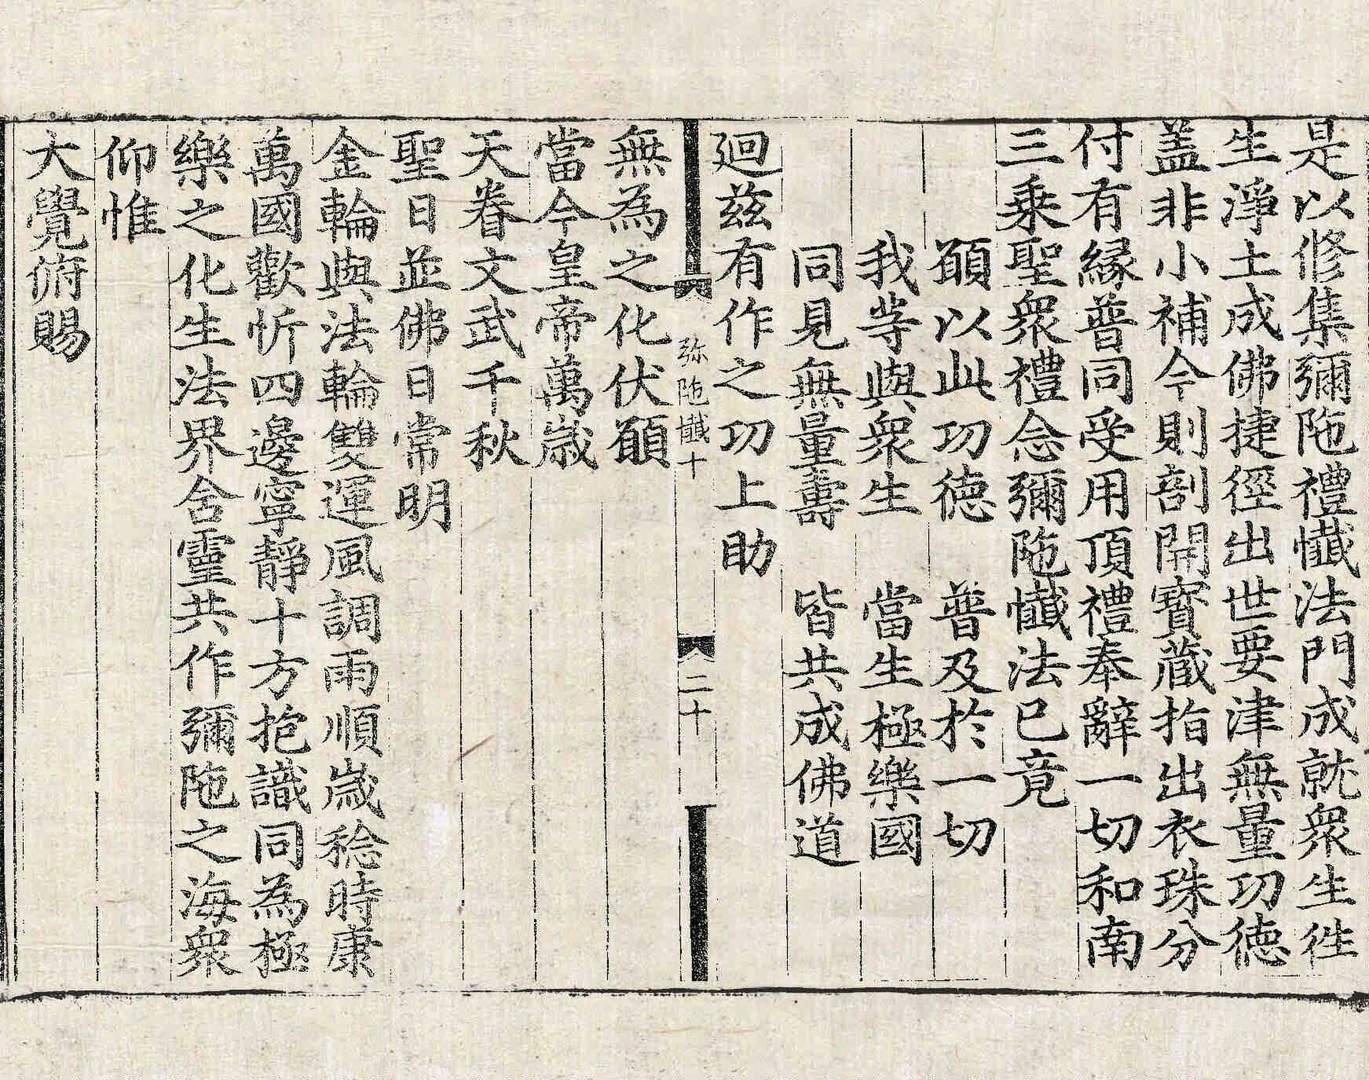 是以修集彌陁禮懺法門成就衆生徃
生淨土成佛捷徑出世要津無量功徳
盖非小補今則剖開寳藏指出衣珠分
付有縁普同受用頂禮奉辭一切和南
三乗聖衆禮念彌陁懺法已竟
願以此功徳　普及於一切
我等與衆生　當生極樂國
同見無量壽　皆共成佛道
廻兹有作之功上助
弥陁懺十　二十
無為之化伏願
當今皇帝萬歳
天眷文武千秋
聖日並佛日常明
金輪與法輪雙運風調雨順歳稔時康
萬國歡忻四邊寧靜十方抱識同為極
樂之化生法界含靈共作彌陁之海衆
仰惟
大覺俯賜